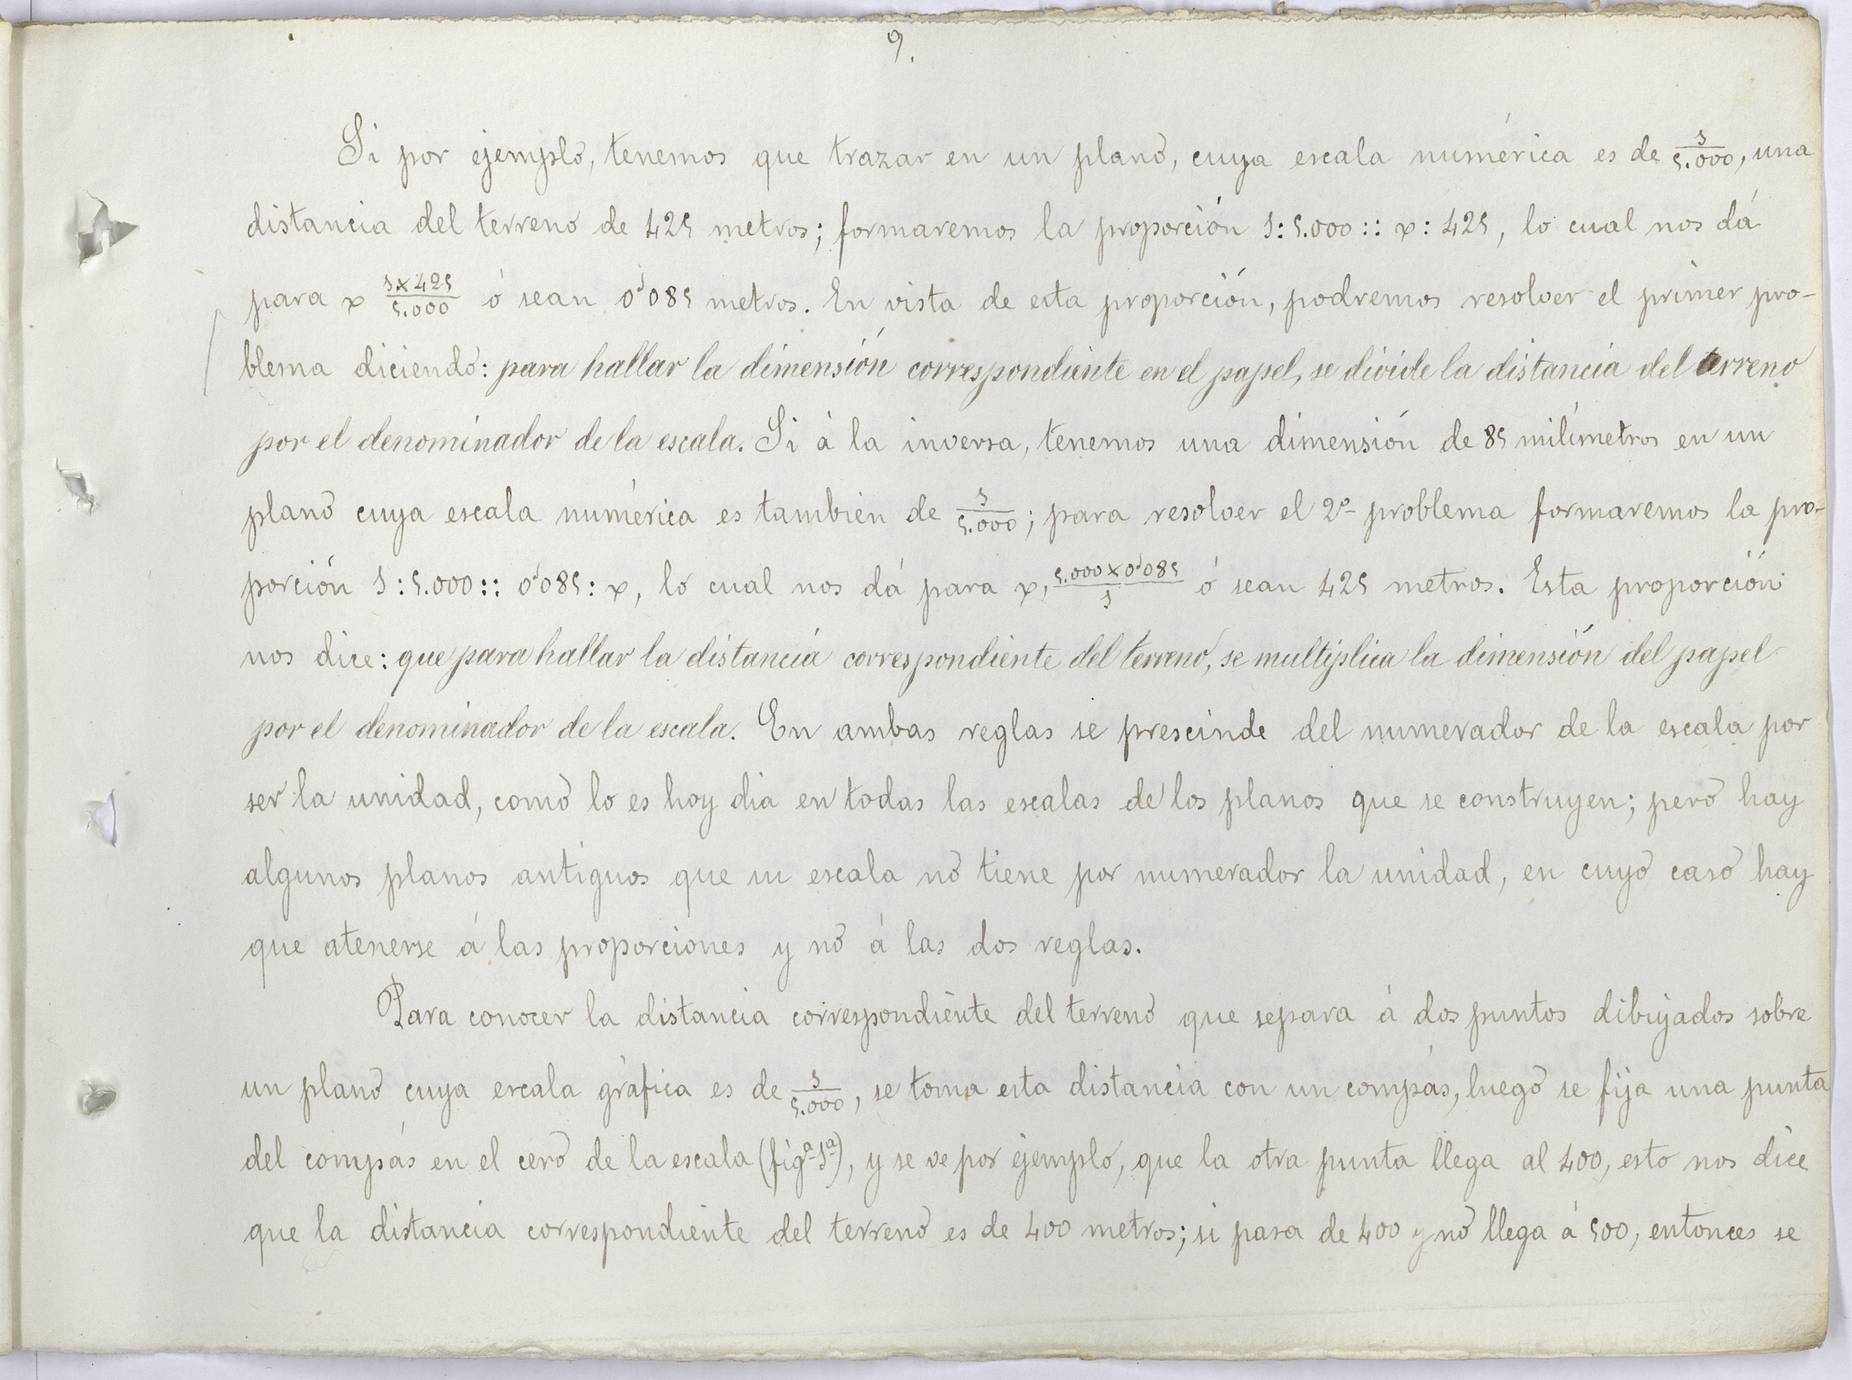 9.
Si por ejemplo, tenemos que trazar en un plano, cuya escala numérica es de 1/5.000, una
distancia del terreno de 425 metros; formaremos la proporción 1:5.000 :: x : 425, lo cual nos dá
para x 1x425/5.000 ó sean 0'085 metros. En vista de esta proporción, podremos resolver el primer pro-
blema diciendo: para hallar la dimensión correspondiente en el papel, se divide la distancia del terreno
por el denominador de la escala. Si á la inversa, tenemos una dimensión de 85 milímetros en un
plano cuya escala numérica es también de 1/5.000; para resolver el 2º problema formaremos la pro-
porción 1:5.000 :: 0'085 : x, lo cual nos dá para x, 5.000x0'085/1 ó sean 425 metros. Esta proporción
nos dice: que para hallar la distancia correspondiente del terreno, se multiplica la dimensión del papel
por el denominador de la escala. En ambas reglas se prescinde del numerador de la escala por
ser la unidad, como lo es hoy dia en todas las escalas de los planos que se construyen; pero hay
algunos planos antiguos que su escala nó tiene por numerador la unidad, en cuyo caso hay
que atenerse á las proporciones y nó á las dos reglas.
Para conocer la distancia correspondiente del terreno que separa á dos puntos dibujados sobre
un plano cuya escala gráfica es de 1/5.000, se toma esta distancia con un compás, luego se fija una punta
del compás en el cero de la escala (figª 1ª), y se ve por ejemplo, que la otra punta llega al 400, esto nos dice
que la distancia correspondiente del terreno es de 400 metros; si pasa de 400 y nó llega á 500, entonces se